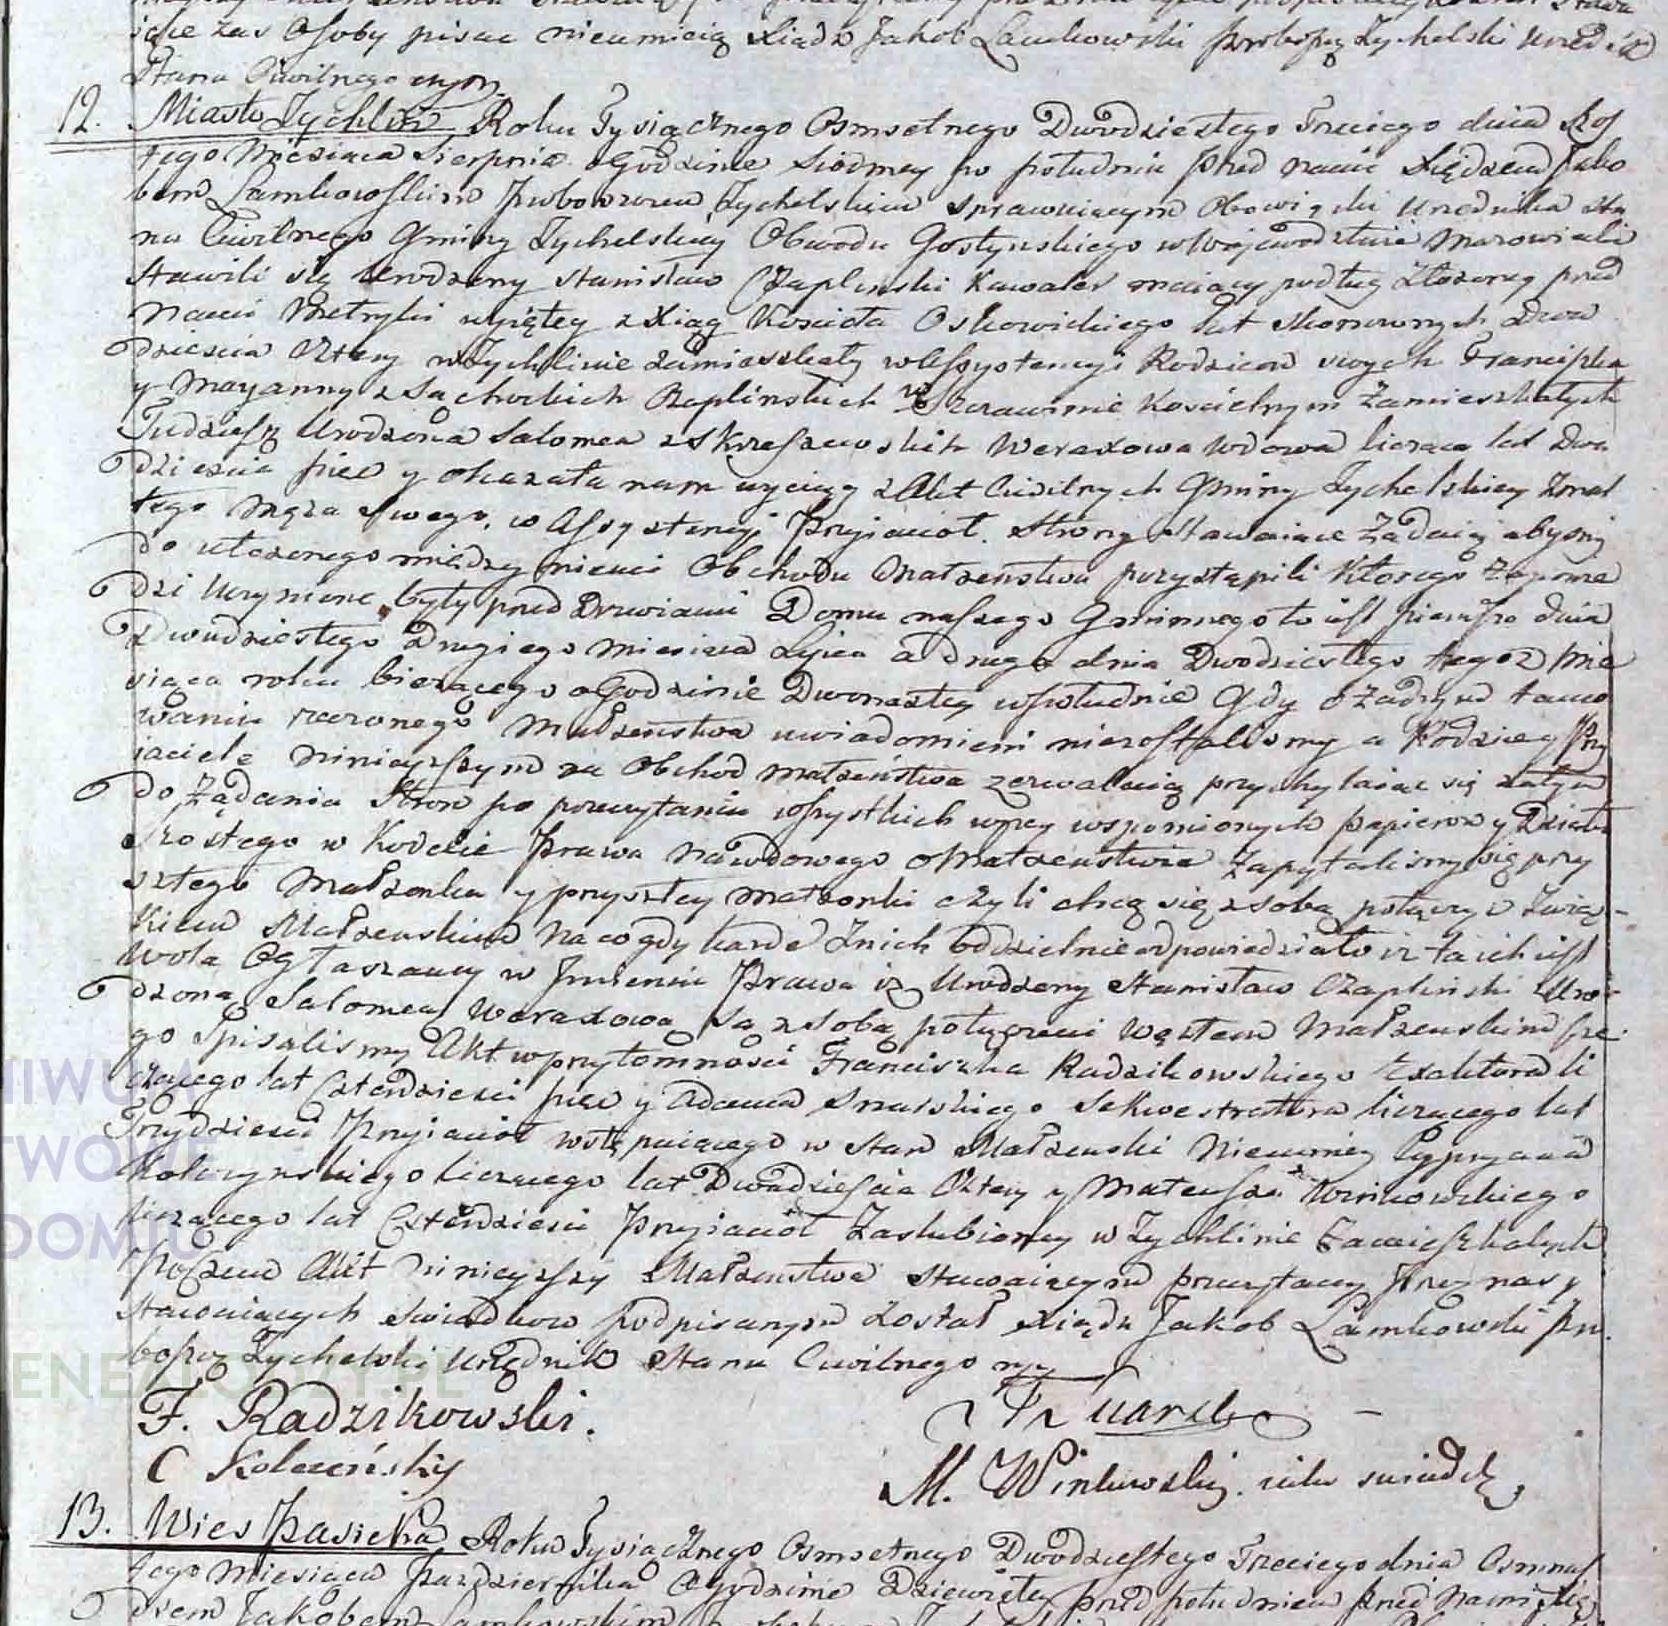 iące zaś Osoby pisać nieumieią Xiądz Jakob Lamkowski Proboszcz Zychelski Urzędnik
Stanu Cywilnego mpp.
12. Miasto Zychlin Roku Tysiącznego Osmsetnego Dwodziestego Trzeciego dnia Szos
tego Miesiąca Sierpnia o Godzinie Siodmey po południu Przed nami Xiędzem Jako
bem Lamkowskim Proboszczem Zychelskim sprawuiącym Obowiązki Urzednika Sta
nu Cywilnego Gminy Zychelskiey Obwodu Gostynskiego w Wojewodztwie Mazowieckim
Stawili się Urodzony Stanisław Czaplinski Kawaler maiący podług złożoney przed
nami Metryki wyiętey z Xiąg Kościoła Oskowickiego lat skonczonych dwa
dziescia Cztery w Zychlinie zamieszkały w Assystencyi Rodzicow swych Franciszka
y Maryanny z Sachockich Czaplinskich w Szczawinie Kościelnym Zamieszkałych
Tudziesz Urodzona Salomea z Skrzeszewskich Weraxowa Wdowa licząca lat Dwa
dziescia pięć y okazała nam wyciąg z Akt Cywilnych Gminy Zychelskiey Zmar
łego Męża swego, w Assystencyi Przyiacioł. Strony Stawaiące Żądaią abysmy
do ułożonego między niemi Obchodu Małżenstwa przystąpili Ktorego Zapowie
dzi Uczynione były przed Drzwiami Domu naszego Gminnego to iest pierwsza dnia
Dwudziestego Drugiego Miesiąca Lipca a druga dnia Dwodziestego tegoż Mie
siąca roku bieżącego o Godzinie Dwonastey w południe Gdy o żadnym tamo
waniu rzeczonego Małżenstwa uwiadomieni niezostalismy a Rodzice y Przy
iaciele niniejszym na Obchod małżeństwa zezwalaią przychylaiąc się zatym
do Żądania Stron po przeczytaniu wszystkich wyżey wspomionych papierow y Działu
Szostego w Kodexie Prawa narodowego o Małżenstwie Zapytalismy się przy
szłego Małżonka y przyszłey małżonki czyli chcą się z sobą połączyć Związ-
kiem Małżenskim na co gdy każde z nich oddzielnie odpowiedziało iż ta ich iest
Wola Ogłaszamy w Imieniu Prawa iż Urodzony Stanisław Czaplinski Uro
dzona Salomea Weraxowa są z sobą połączeni Węzłem Małżenskim Cze
go Spisalismy Akt w przytomności Franciszka Radzikowskiego Exaktora li
czącego lat Czterdziesci pięć y Adama Sekwestratora liczącego lat
Trzydziesci Przyiacioł wstępuiącego w Stan Małżenski Niemniey Cypryana
Kolczynskiego liczącego lat Dwadziescia Cztery y Mateusza Winkowskiego
liczącego lat Czterdziesci Przyiacioł Zaslubioney w Zychlinie Zamieszkałych
Poczem Akt niniejszy Małżenstwa stawaiącym przeczytany Przez nas y
Stawaiących swiadkow podpisanym został Xiądz Jakob Lamkowski Pro
boszcz Zychelski Urzędnik Stanu Cywilnego mpp
F. Radzikowski.
C Kolczeński
M. Winkowski iako swiadek
13. Wies Pasieka Roku Tysiącznego Osmsetnego Dwodziestego Trzeciego dnia Osmnas
tego Miesiąca Pazdziernika o godzinie Dziewiątey przed południem przed nami Xię
dzem Jakobem Lamkowskim